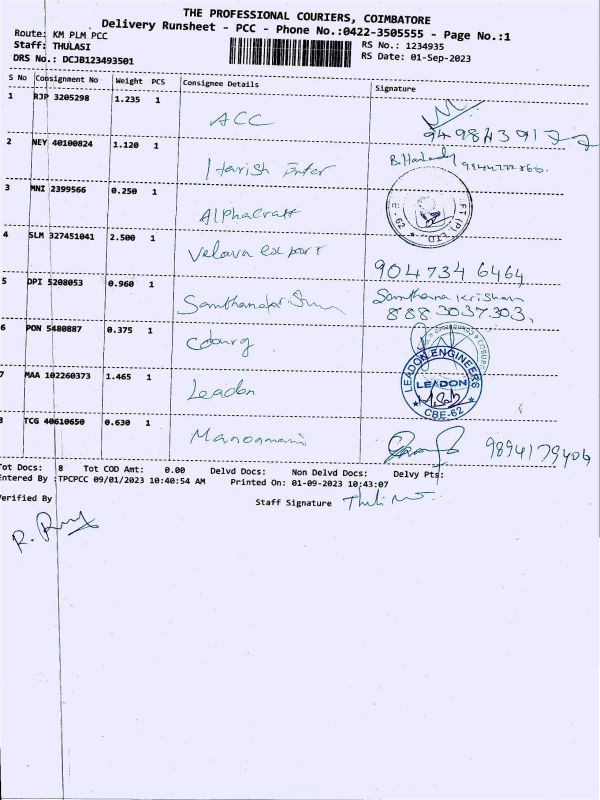 THE PROFESSIONAL COURIERS, COIMBATORE
Delivery Runsheet - PCC - Phone No.:0422-3505555 - Page No.:1
Route: KM PLM PCC
RS No.: 1234935
Staff: THULASI
RS Date: 01-Sep-2023
DRS No.: DCJB123493501
S No Consignment No Weight PCS Consignee Details Signature
1 RJP 3205298 1.235 1 ACC
9498439177
2 NEY 40100824 1.120 1 Harish Enter
3 MNI 2399566 0.250 1 Alphacraft
4 SLM 327451041 2.500 1 Velava export
9047346464
5 DPI 5208053 0.960 1
8883037303
6 PON 5480887 0.375 1 Coburg
7 MAA 102260373 1.465 1 Leadon
LEADON ENGINEERS
LEADON
CBE-62
8 TCG 40610650 0.630 1 Manonmani 9894179406
Tot Docs: 8 Tot COD Amt: 0.00 Delvd Docs: Non Delvd Docs: Delvy Pts:
Entered By :TPCPCC 09/01/2023 10:40:54 AM Printed On: 01-09-2023 10:43:07
Verified By Staff Signature